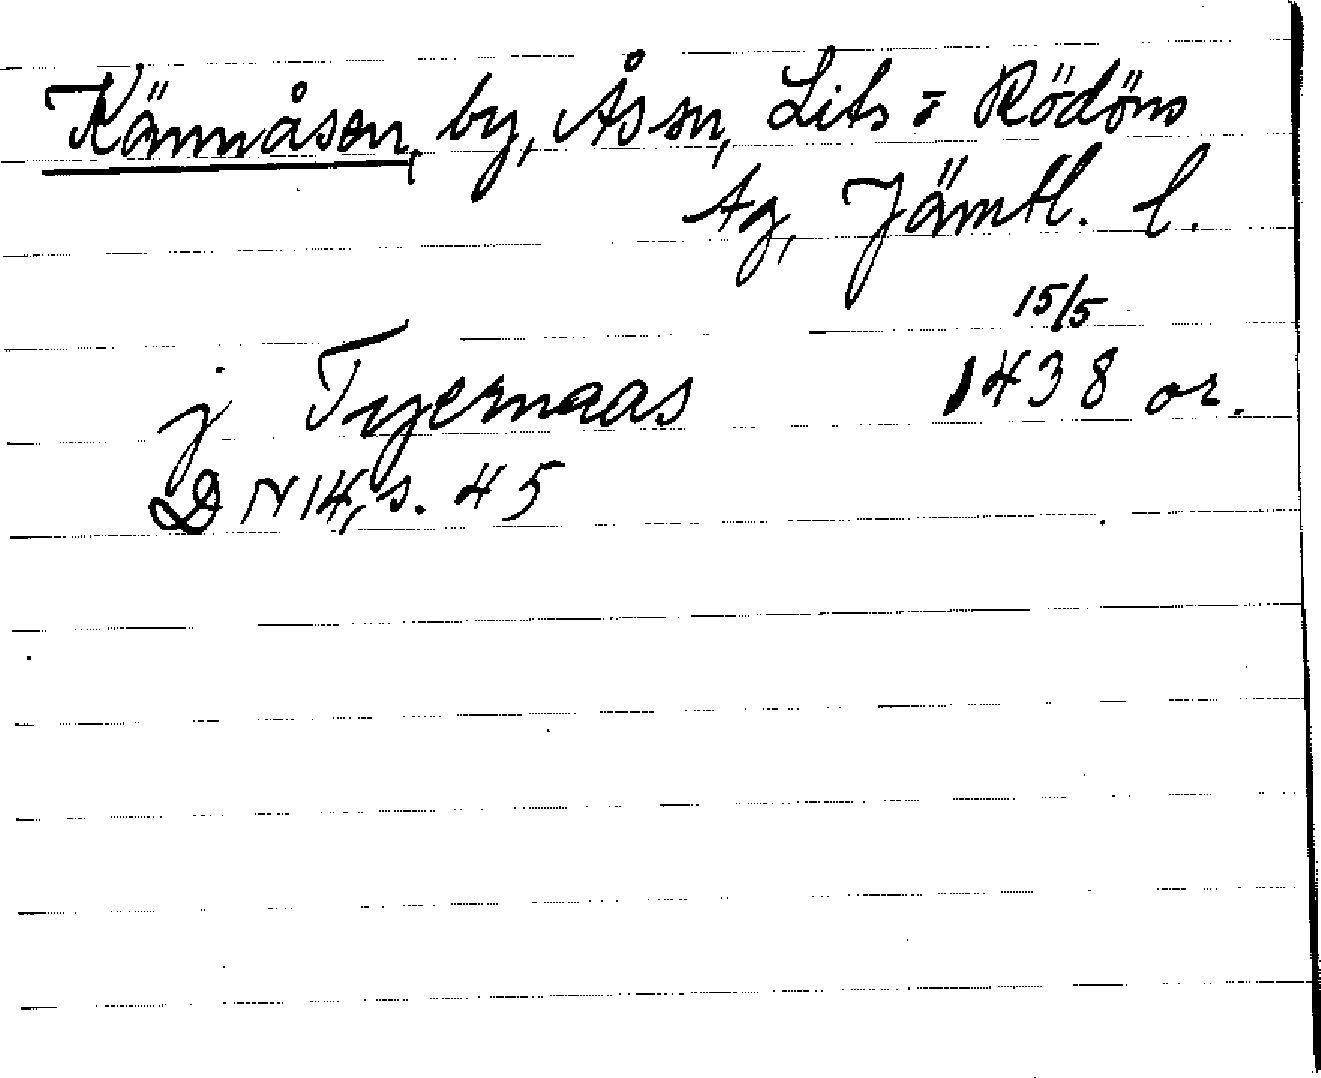 Kännåsen, by, Ås sn, Lits o Rödöns
tg, Jämtl. l.
15/5
j Tyernaas 1438 or.
DN 14, s. 45